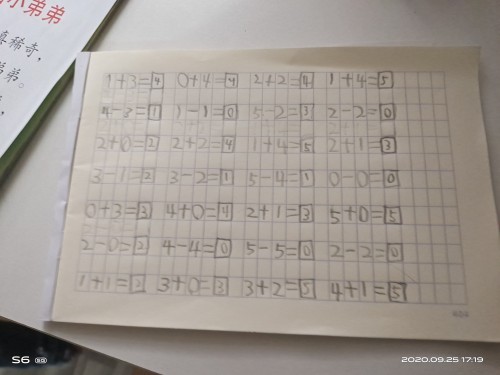 小弟弟
真稀奇，
弟弟。
1+3=4 0+4=4 2+2=4 1+4=5
4-3=1 1-1=0 5-2=3 2-2=0
2+0=2 2+2=4 1+4=5 2+1=3
3-1=2 3-2=1 5-4=1 0-0=0
0+3=3 4+0=4 2+1=3 5+0=5
2-0=2 4-4=0 5-5=0 2-2=0
1+1=2 3+0=3 3+2=5 4+1=5
S6 5G
2020.09.25 17:19